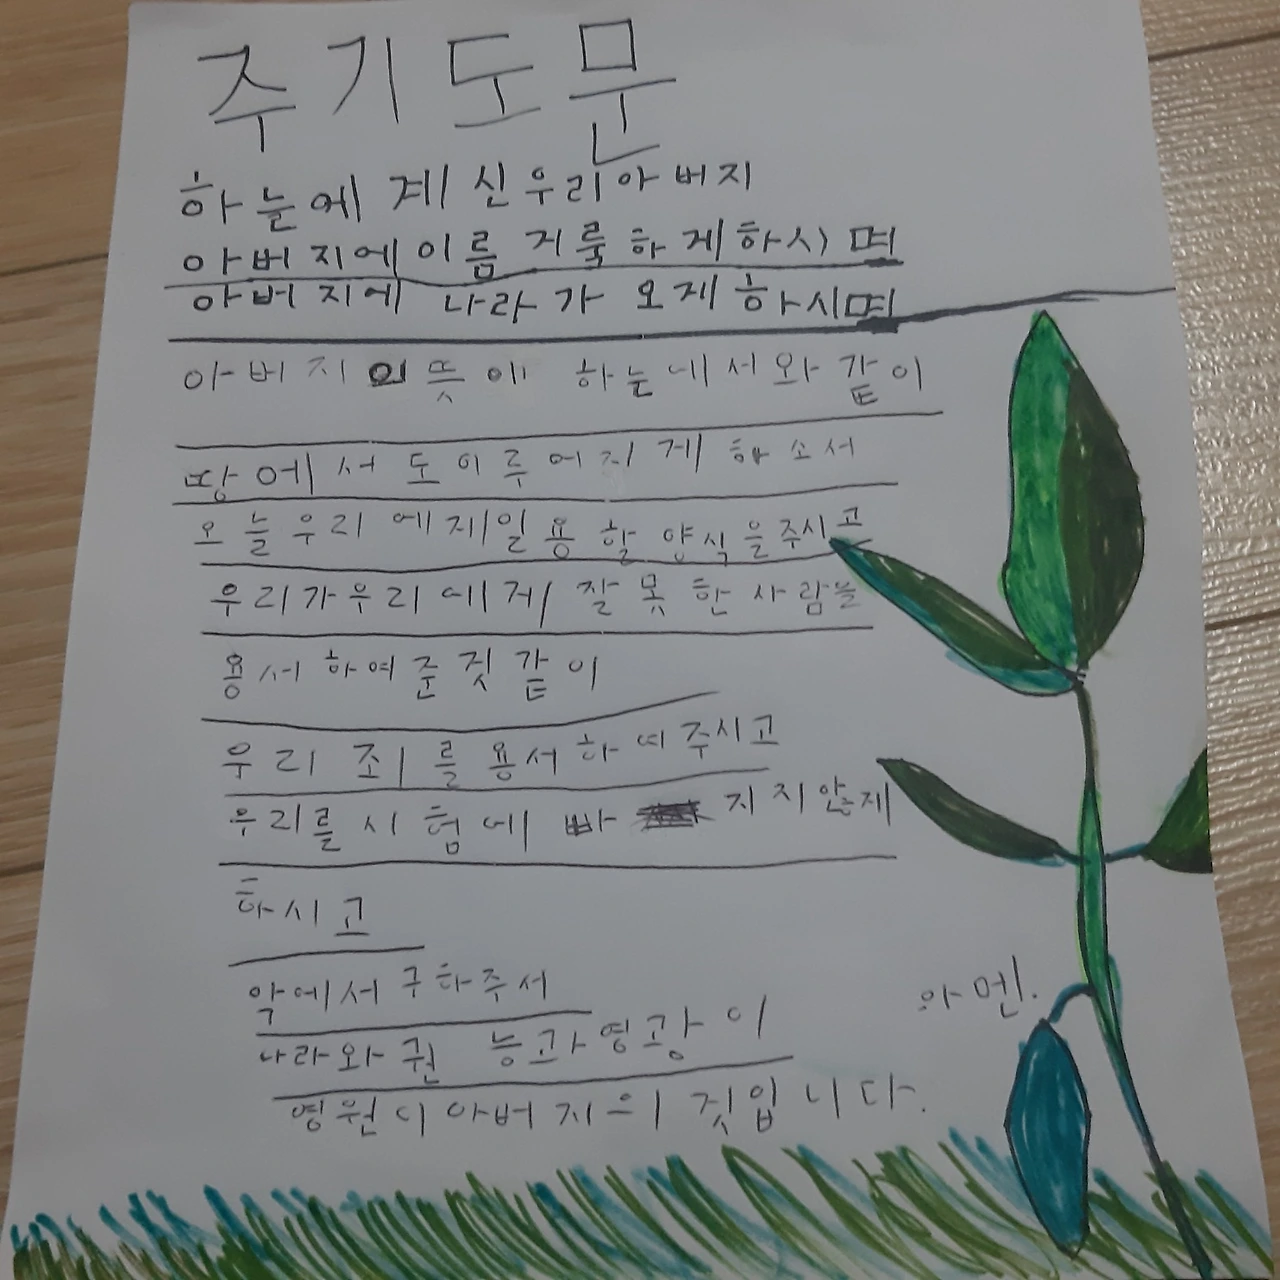 주기도문
하눌에 계신우리아버지
아버지에이름 거룩하게하시며
아버지에 나라가 오게하시며
아버지의뜻에 하눈에서와같이
땅에서도이루어지게하소서
오늘우리에게일용할양식을주시고
우리가우리에게잘못한사람을
용서하여준것같이
우리죄를용서하여주시고
우리를시험에빠 지지안게
하시고
악에서구하주서
나라와권 능과영광이
영원디아버지의것입니다.
아멘.